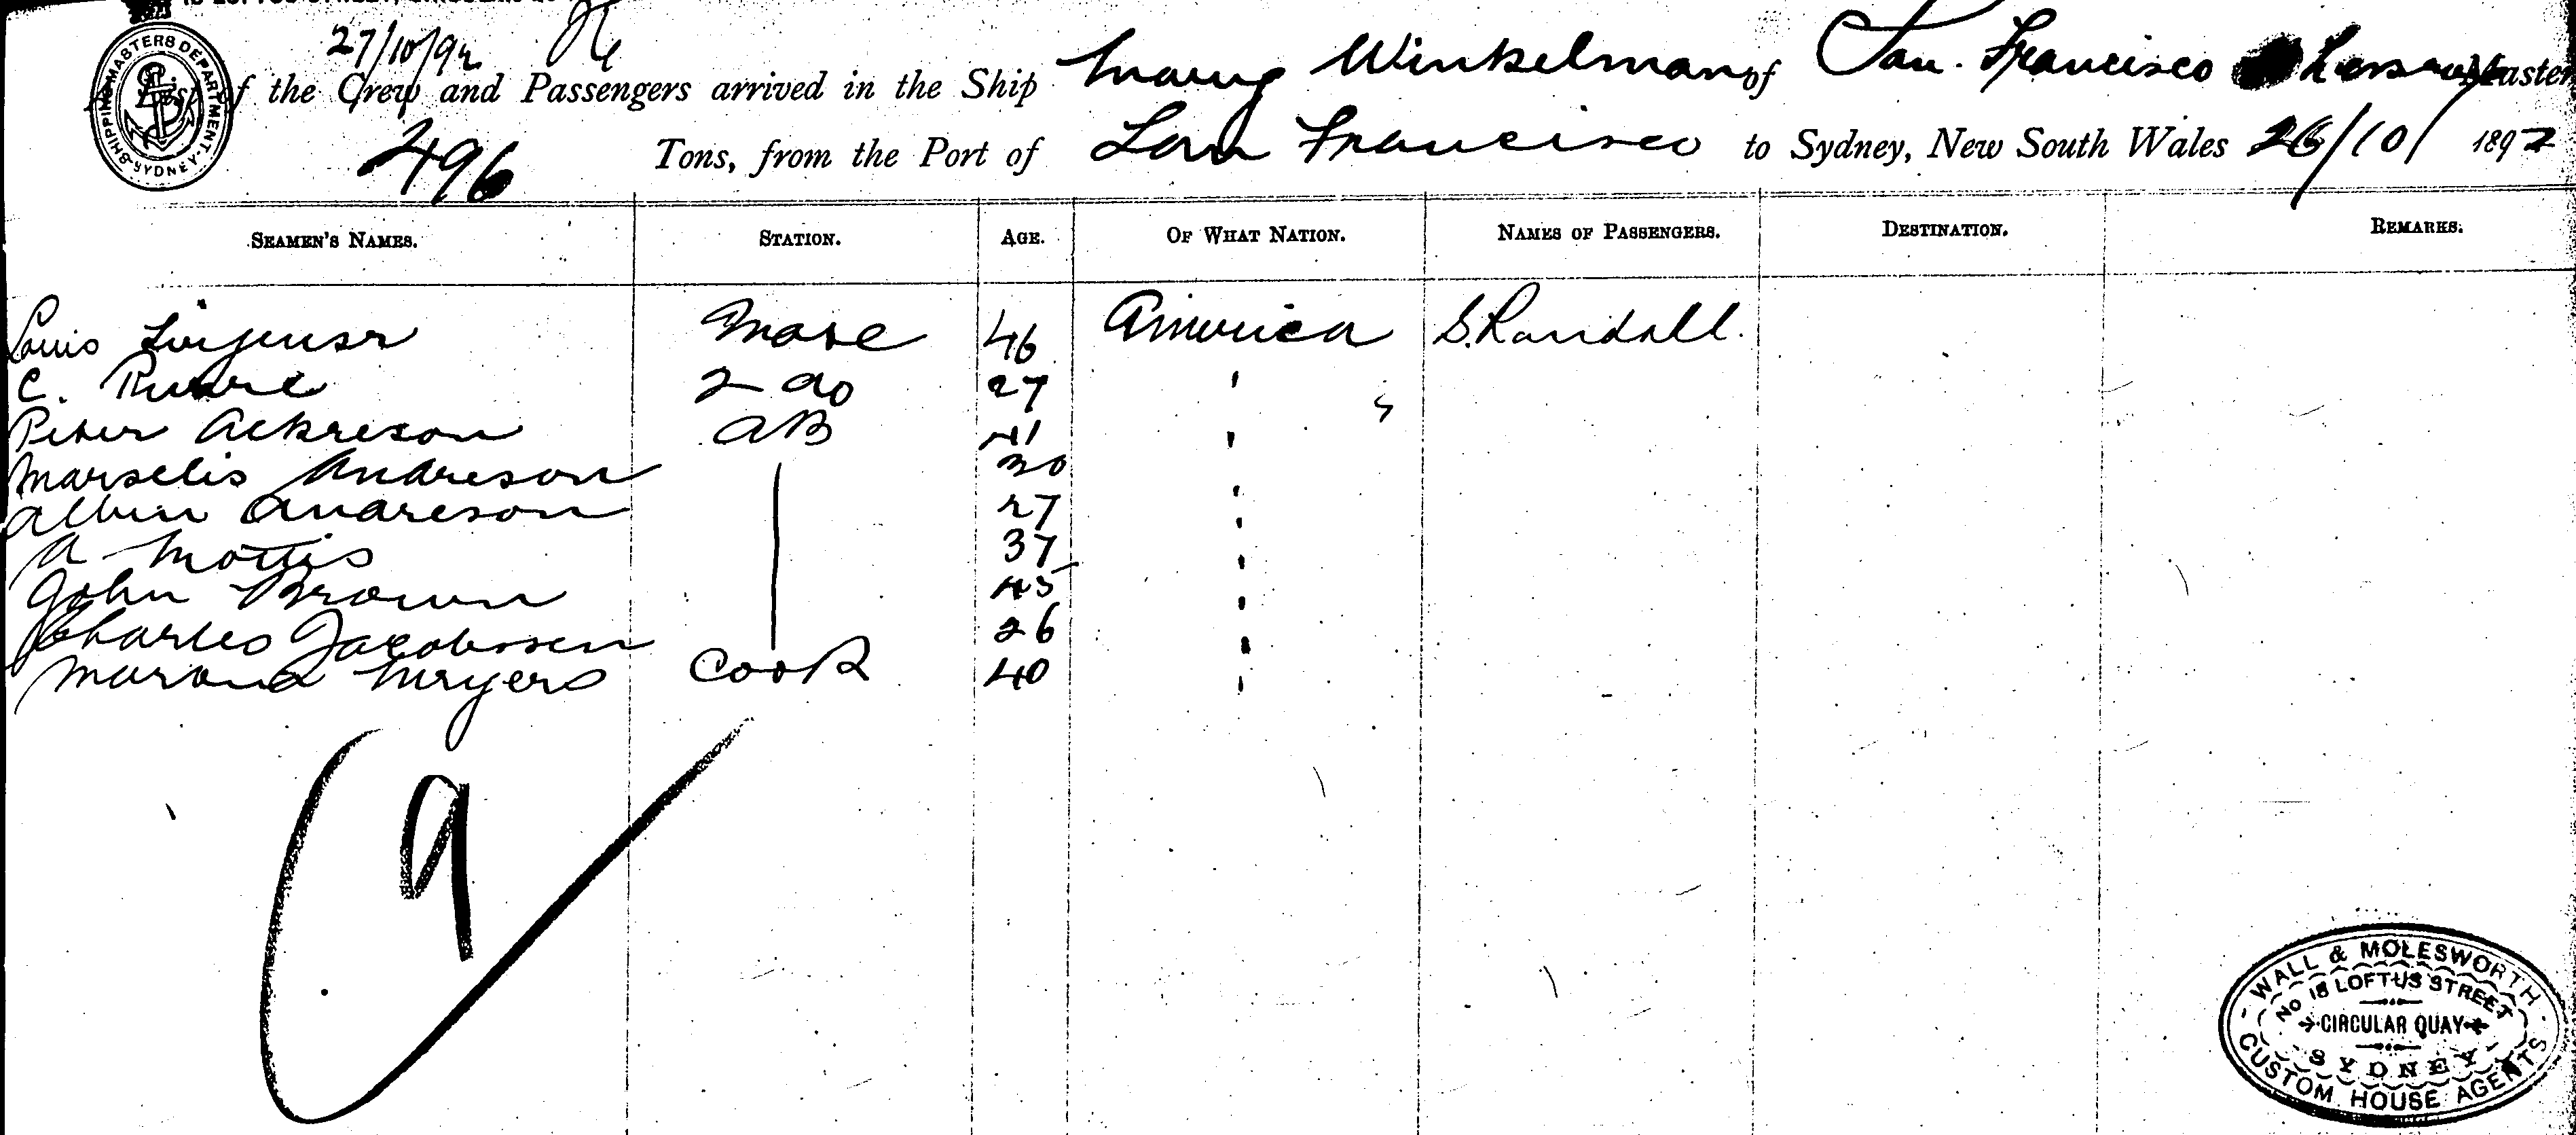 27/10/92
SHIPPING MASTERS DEPARTMENT. SYDNEY.
A List of the Crew and Passengers arrived in the Ship Mary Winkelman of San Francisco Master
496 Tons, from the Port of San Francisco to Sydney, New South Wales 26/10/ 1892
SEAMEN'S NAMES. STATION. AGE. OF WHAT NATION. NAMES OF PASSENGERS. DESTINATION. REMARKS.
Louis Mate 46 America S. Randall.
C. 2 do 27 "
Peter Ackreson AB 41 "
Marselis Andreson 30 "
Albin Andreson 27 "
A Mottis 37 "
John Brown 45 "
Charles Jacobssen 26 "
Meyers Cook 40 "
9
WALL & MOLESWORTH
No 18 LOFTUS STREET
CIRCULAR QUAY
SYDNEY
CUSTOM HOUSE AGENTS